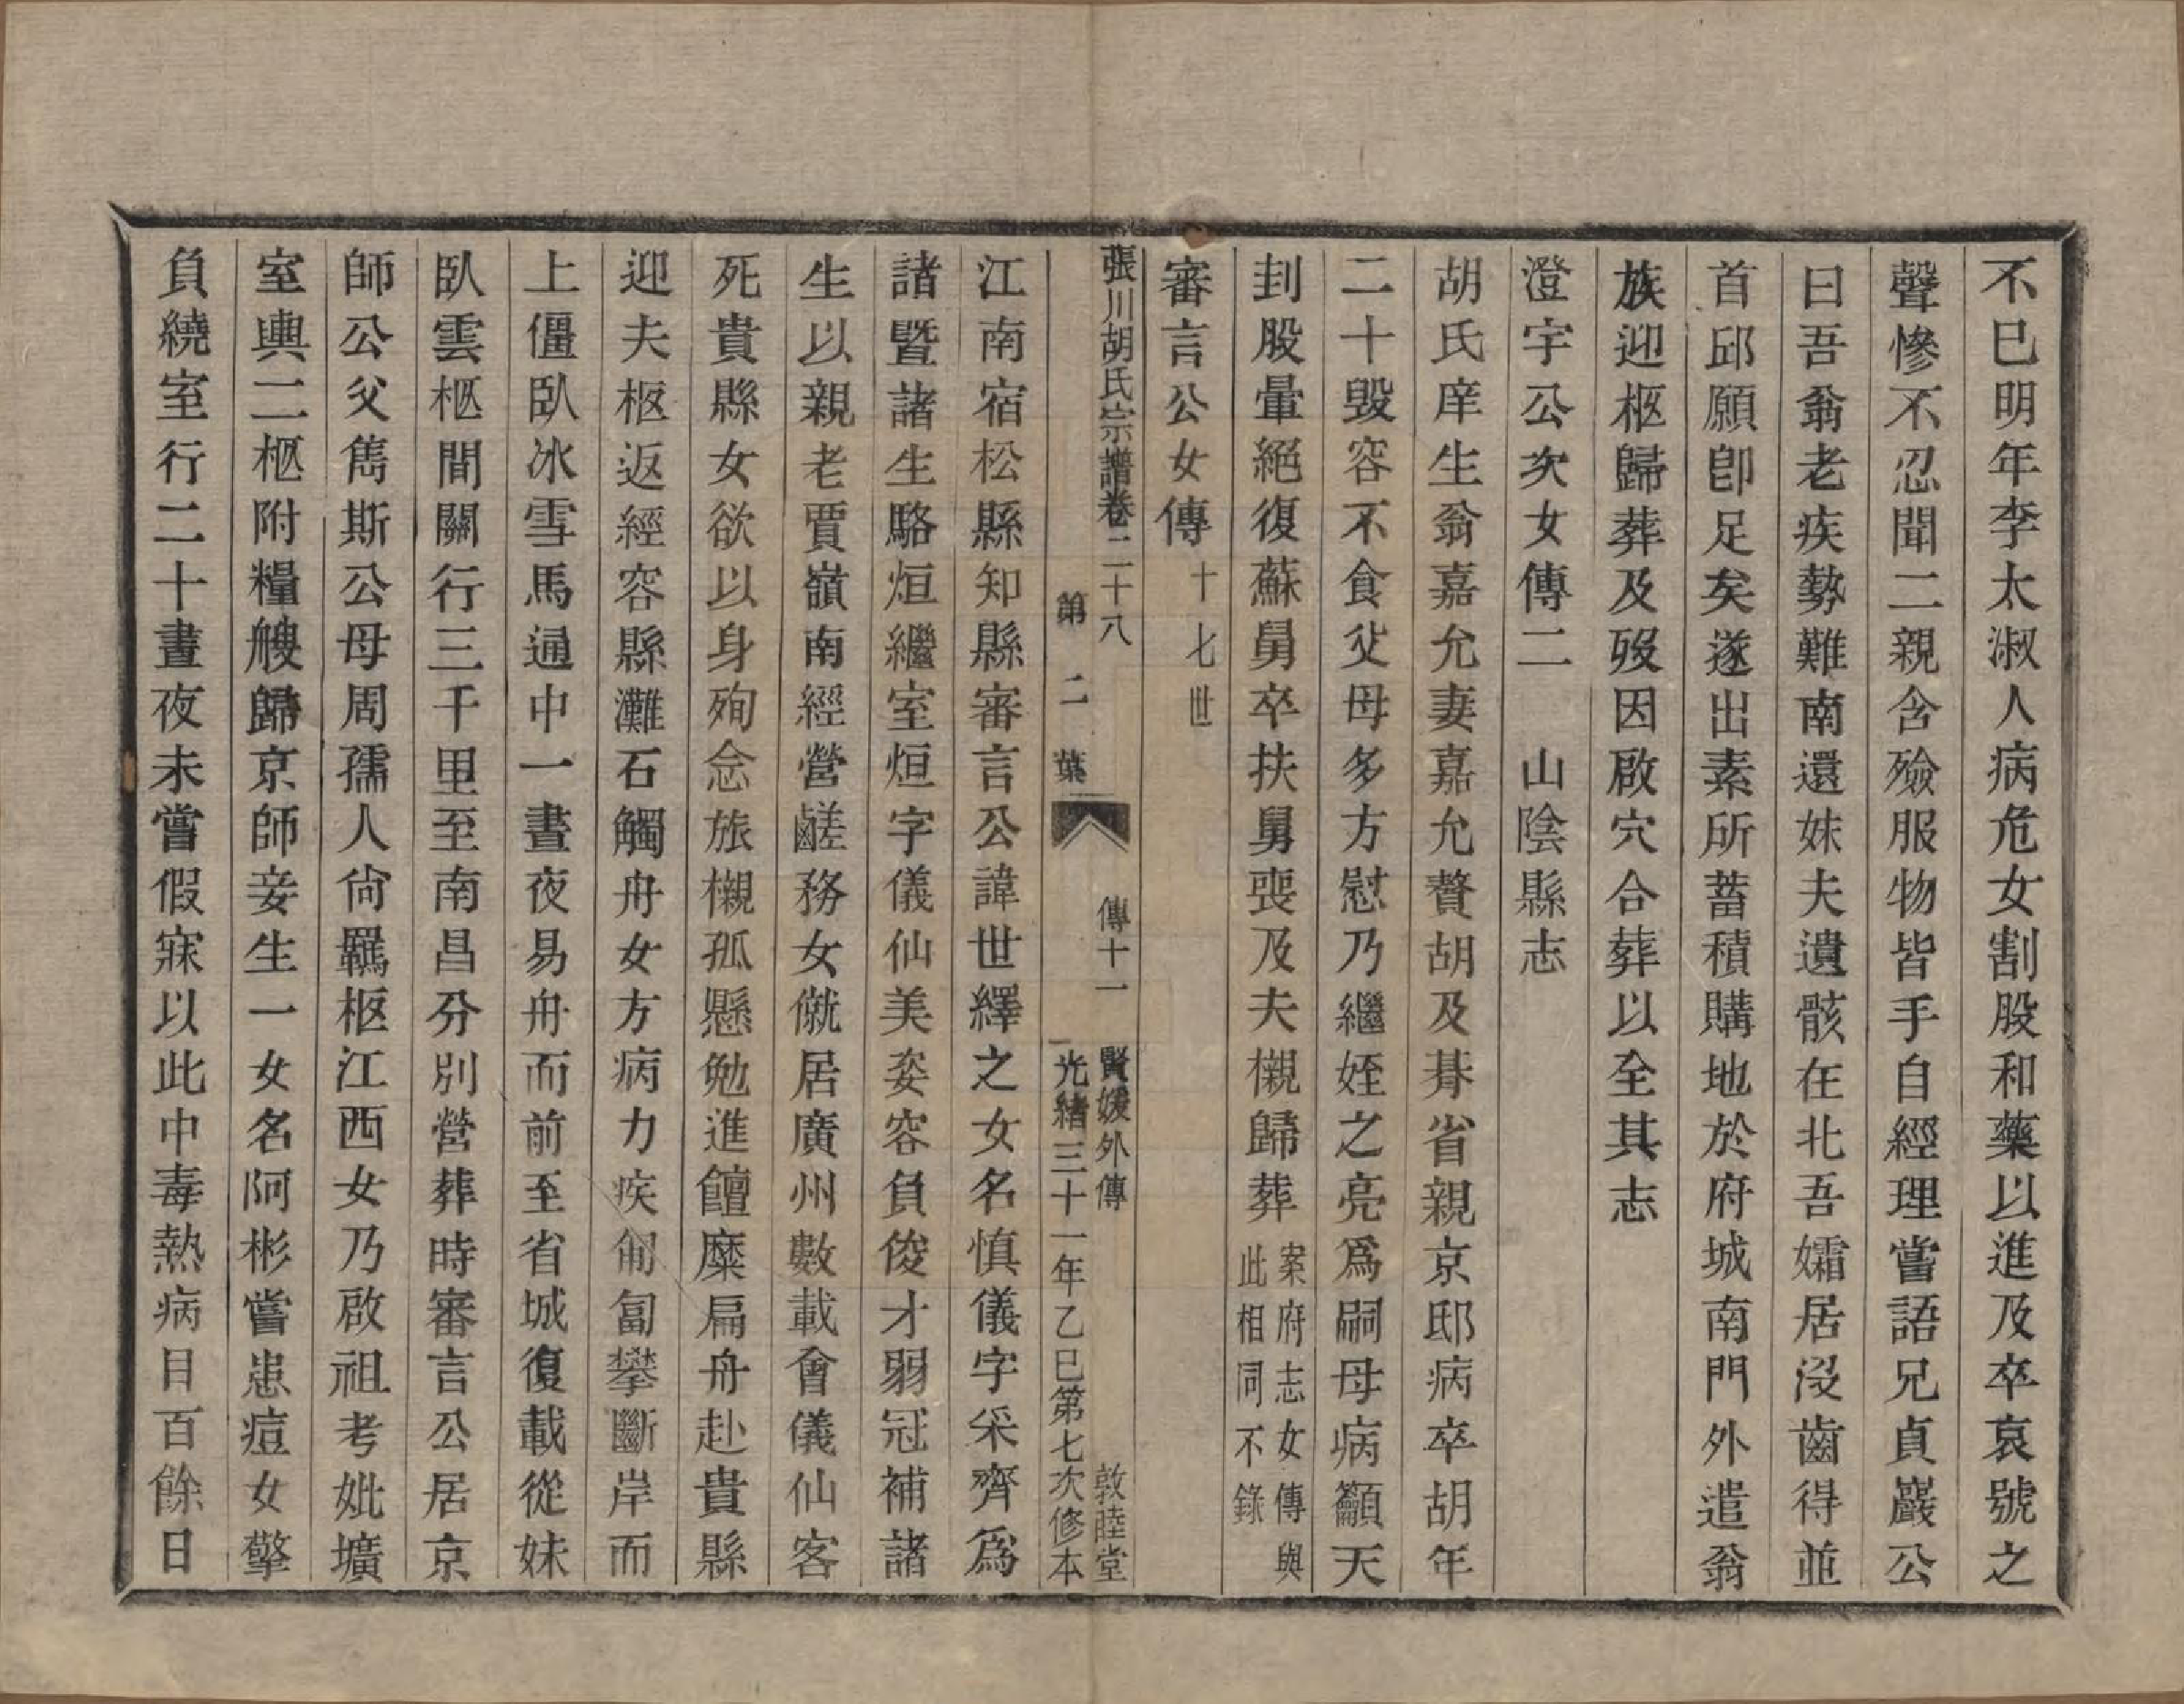 不已明年李太淑人病危女割股和藥以進及卒哀號之
聲慘不忍聞二親含殮服物皆手自經理嘗語兄貞巖公
曰吾翁老疾勢難南還妹夫遺骸在北吾孀居沒齒得並
首邱願卽足矣遂出素所蓄積購地於府城南門外遣翁
族迎柩歸葬及歿因啟穴合葬以全其志
澄宇公次女傳二 山陰縣志
胡氏庠生翁嘉允妻嘉允贅胡及朞省親京邸病卒胡年
二十毀容不食父母多方慰乃繼姪之亮爲嗣母病籲天
刲股暈絕復蘇舅卒扶舅喪及夫櫬歸葬 案府志女傳與
此相同不錄
審言公女傳 十七世
張川胡氏宗譜卷二十八 傳十一 賢媛外傳 敦睦堂
第二葉 光緒三十一年乙巳第七次修本
江南宿松縣知縣審言公諱世繹之女名慎儀字采齊爲
諸暨諸生駱烜繼室烜字儀仙美姿容負俊才弱冠補諸
生以親老賈嶺南經營鹺務女僦居廣州數載會儀仙客
死貴縣女欲以身殉念旅櫬孤懸勉進饘糜扁舟赴貴縣
迎夫柩返經容縣灘石觸舟女方病力疾匍匐攀斷岸而
上僵臥冰雪馬通中一晝夜易舟而前至省城復載從妹
臥雲柩間關行三千里至南昌分別營葬時審言公居京
師公父雋斯公母周孺人尙羈柩江西女乃啟祖考妣壙
室輿二柩附糧艘歸京師妾生一女名阿彬嘗患痘女擎
負繞室行二十晝夜未嘗假寐以此中毒熱病目百餘日